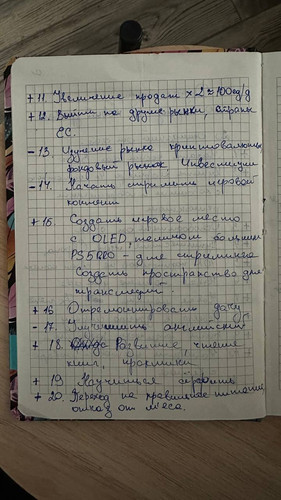 + 11. Увеличение продаж x2 ≈ 100ед/д
+ 12. Выйти на другие рынки, страны
ЕС.
- 13. Изучение рынка криптовалюты
фондовый рынок Инвестиции
- 14. Начать стримить игровой
контент
+ 15 Создать игровое место
с OLED, теликом большим
PS5 PRO - для стриминга
Создать пространство для
трансляций
+ 16 Отремонтировать дачу
- 17. Улучшить английский
+ 18. Развитие, чтение
книг, практики
+ 19 Научиться
+ 20. Переход на правильное питание
отказ от мяса.